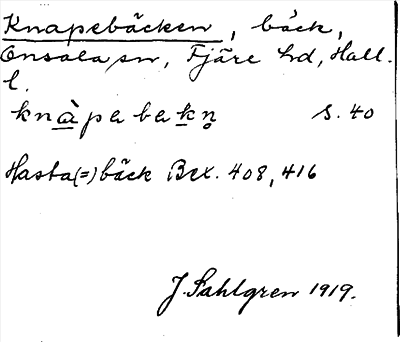 Knapebäcken, bäck,
Onsala sn, Fjäre hd, Hall.
l.
knàpabakn̥ s. 40
Hasta(=)bäck Bex. 408, 416
J. Sahlgren 1919.